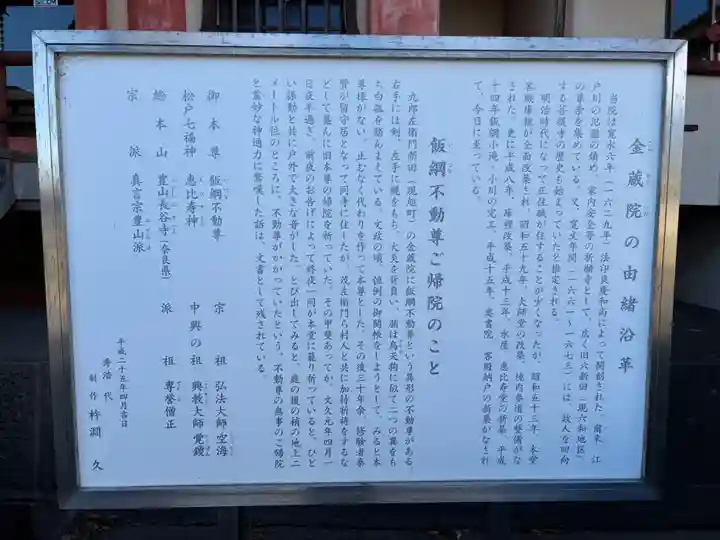 金蔵院の由緒沿革
当院は寛永六年（一六二九年）法印良慶和尚によって開創された。爾来、江
戸川の氾濫の鎮め、家内安全等の祈願寺として、広く旧六新田（現六和地区）
の尊崇を集めている。又、寛文年間（一六六一～一六七三）には、故人を回向
する菩提寺の歴史も始まっていたと推定される。
明治時代になって正住職が住することが少なくなったが、昭和五十三年、本堂
客殿庫裡が全面改築され、昭和五十九年、大師堂の改築、境内参道の整備がな
された。更に平成八年、庫裡改築、平成十三年、水屋、恵比寿堂の新築、平成
十四年飯綱小滝、小川の完工、平成十五年、奥書院、客殿納戸の新築がなされ
て、今日に至っている。
飯綱不動尊ご帰院のこと
九郎左衛門新田（現旭町）の金蔵院に飯綱不動尊という異形の不動尊がある。
右手には剣、左手に縄をもち、火炎を背負い、顔は烏天狗に似て二つの翼をも
ち白狐を踏んまえている。文政の頃、恒例の御開帳をしようとして、みると本
尊様がない。止むなく代わりを作って本尊とした。その後三十年余、修験者泰
賢が留守居となって同寺に住したが、茂左衛門ら村人と共に加持祈祷をするな
どして盛んに旧本尊の帰院を祈っていた。その甲斐あってか、文久元年四月一
日夜半過ぎ、前夜のお告げによって終夜一同が本堂に籠り祈っていると、ひど
い振動と共に戸外で大きな音がした。とび出してみると、庭の後の楠の地上二
メートル位のところに、不動尊がかかっていたという。不動尊の無事のご帰院
と霊妙な神通力に驚嘆した話は、文書として残されている。
御本尊 飯綱不動尊 宗祖 弘法大師 空海
松戸七福神 恵比寿神 中興の祖 興教大師 覚鑁
総本山 豊山長谷寺（奈良県） 派祖 専誉僧正
宗派 真言宗豊山派
平成二十五年四月吉日
秀浩代
制作 杵淵 久